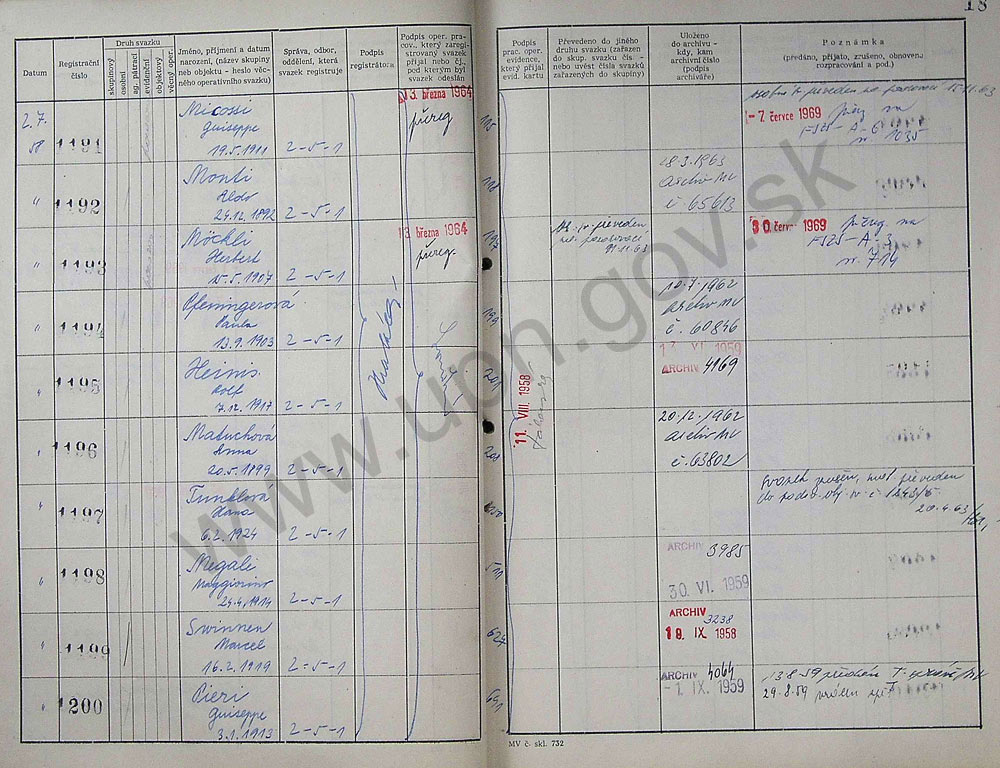 18
Datum
Registrační číslo
Druh svazku
skupinový
osobní
ag. pátrací
evidenční
objektový
věcný oper.
Jméno, příjmení a datum
narození, (název skupiny
neb objektu - heslo věc-
ného operativního svazku)
Správa, odbor,
oddělení, která
svazek registruje
Podpis
registrátora
Podpis oper. pra-
cov., který zaregi-
strovaný svazek
přijal nebo čj.,
pod kterým byl
svazek odeslán
Podpis
prac. oper.
evidence,
který přijal
evid. kartu
Převedeno do jiného
druhu svazku (zařazen
do skup. svazku čís. -
nebo uvést čísla svazků
zařazených do skupiny)
Uloženo
do archivu -
kdy, kam
archivní číslo
(podpis
archiváře)
Poznámka
(předáno, přijato, zrušeno, obnoven.
rozpracování a pod.)
2.7.
58
1191
Micossi
Guiseppe
19.5.1911
2-5-1
13. března 1964
přereg
195
15.11.63
-7. července 1969
na
FS25-A-6
1035
"
1192
Monti
Aldo
24.12.1892
2-5-1
28.3.1963
Archiv MV
č. 65613
"
1193
Möchli
Herbert
15.5.1907
2-5-1
13. března 1964
přereg.
převeden
30. červ 1969
na
FS25-A-3
714
"
1194
Pfeningerová
Paula
13.9.1903
2-5-1
199
10.7.1962
Archiv MV
č. 60846
"
1195
Heims
Rolf
7.12.1917
2-5-1
201
11. VIII. 1958
17. XI. 1959
ARCHIV 4169
"
1196
Matuchová
Anna
20.5.1899
2-5-1
20.12.1962
Archiv MV
č. 63802
"
1197
Tunklová
Hana
6.2.1924
2-5-1
svazek zrušen,
20.4.63
"
1198
Megali
Maggiorino
24.4.1914
2-5-1
511
ARCHIV 3985
30. VI. 1959
"
1199
Swinnen
Marcel
16.2.1919
2-5-1
624
ARCHIV
3238
18. IX 1958
"
1200
Pieri
Guiseppe
3.1.1913
2-5-1
691
ARCHIV 4064
-1. IX. 1959
13.8.59 předán
29.8.59 vrácen zpět
MV č. skl. 732
www.upn.gov.sk